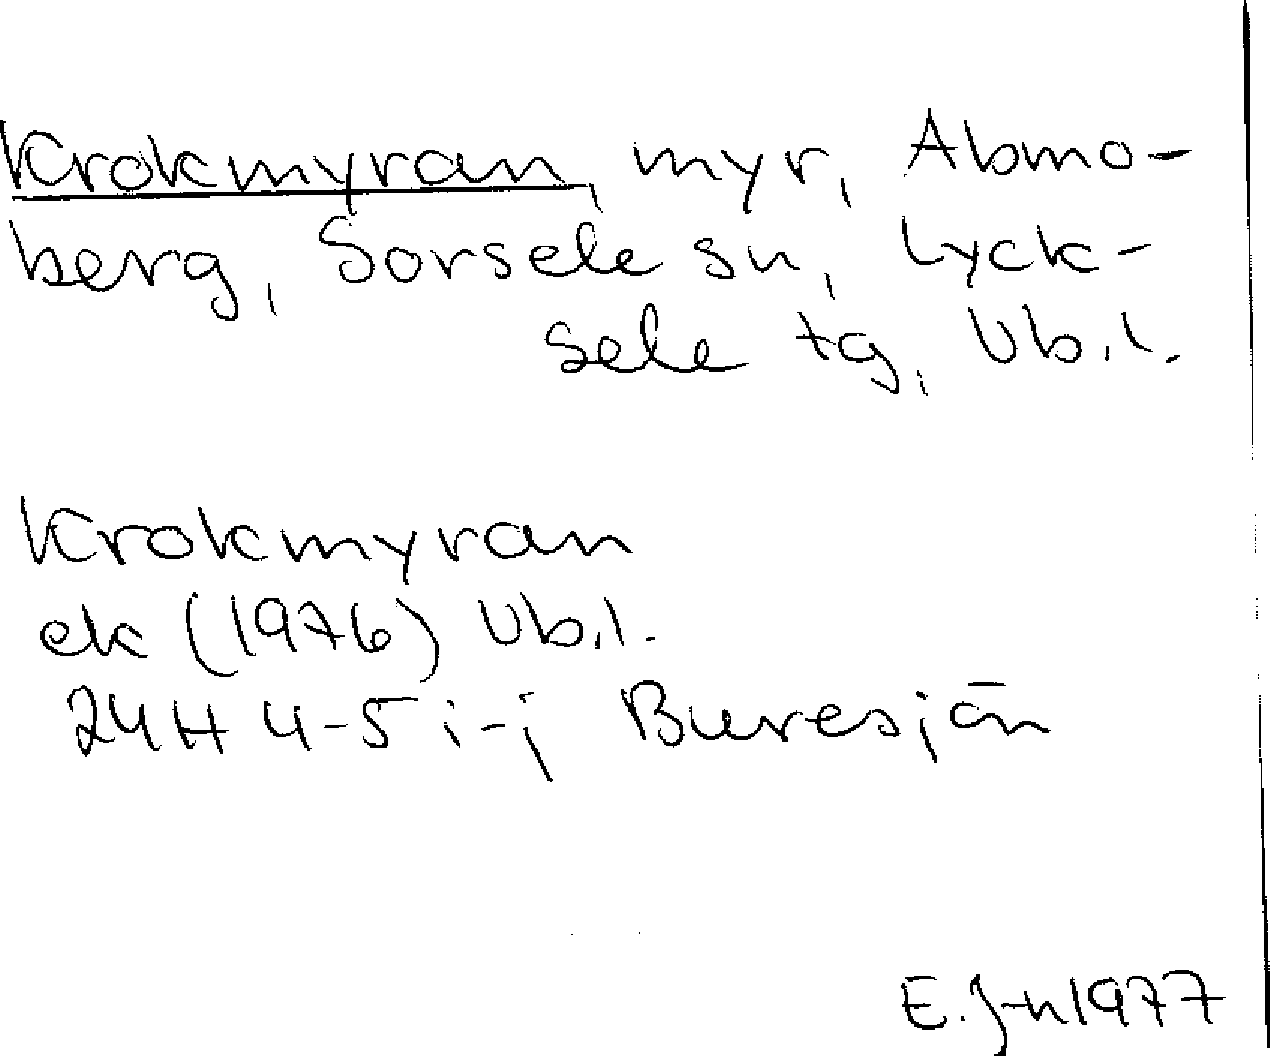 Krokmyran, myr, Abmo-
berg, Sorsele sn, Lyck-
sele tg, Vb.l.
Krokmyran
ek (1976) Vb.l.
24H 4-5 i-j Buresjön
E.J-n 1977